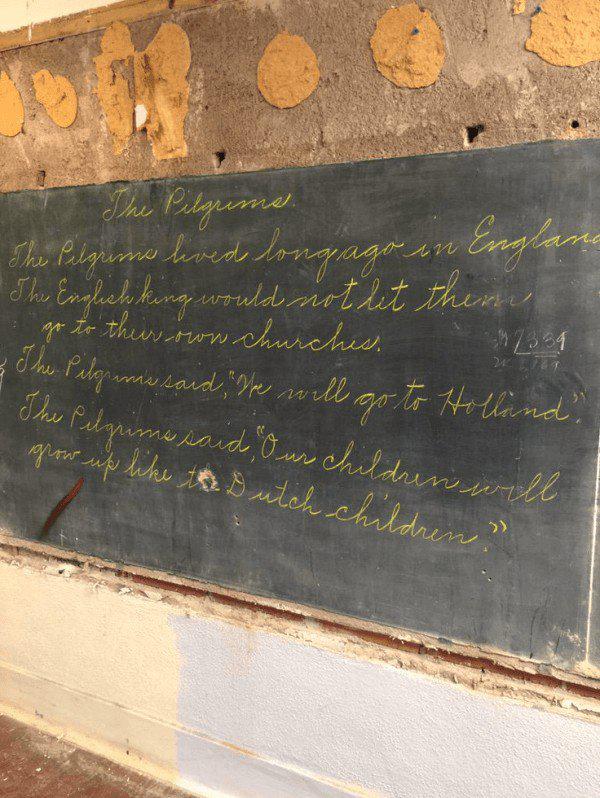 The Pilgrims.
The Pilgrims lived long ago in England
The English king would not let them
go to their own churches.
The Pilgrims said, "We will go to Holland".
The Pilgrims said, "Our children will
grow up like to Dutch children."